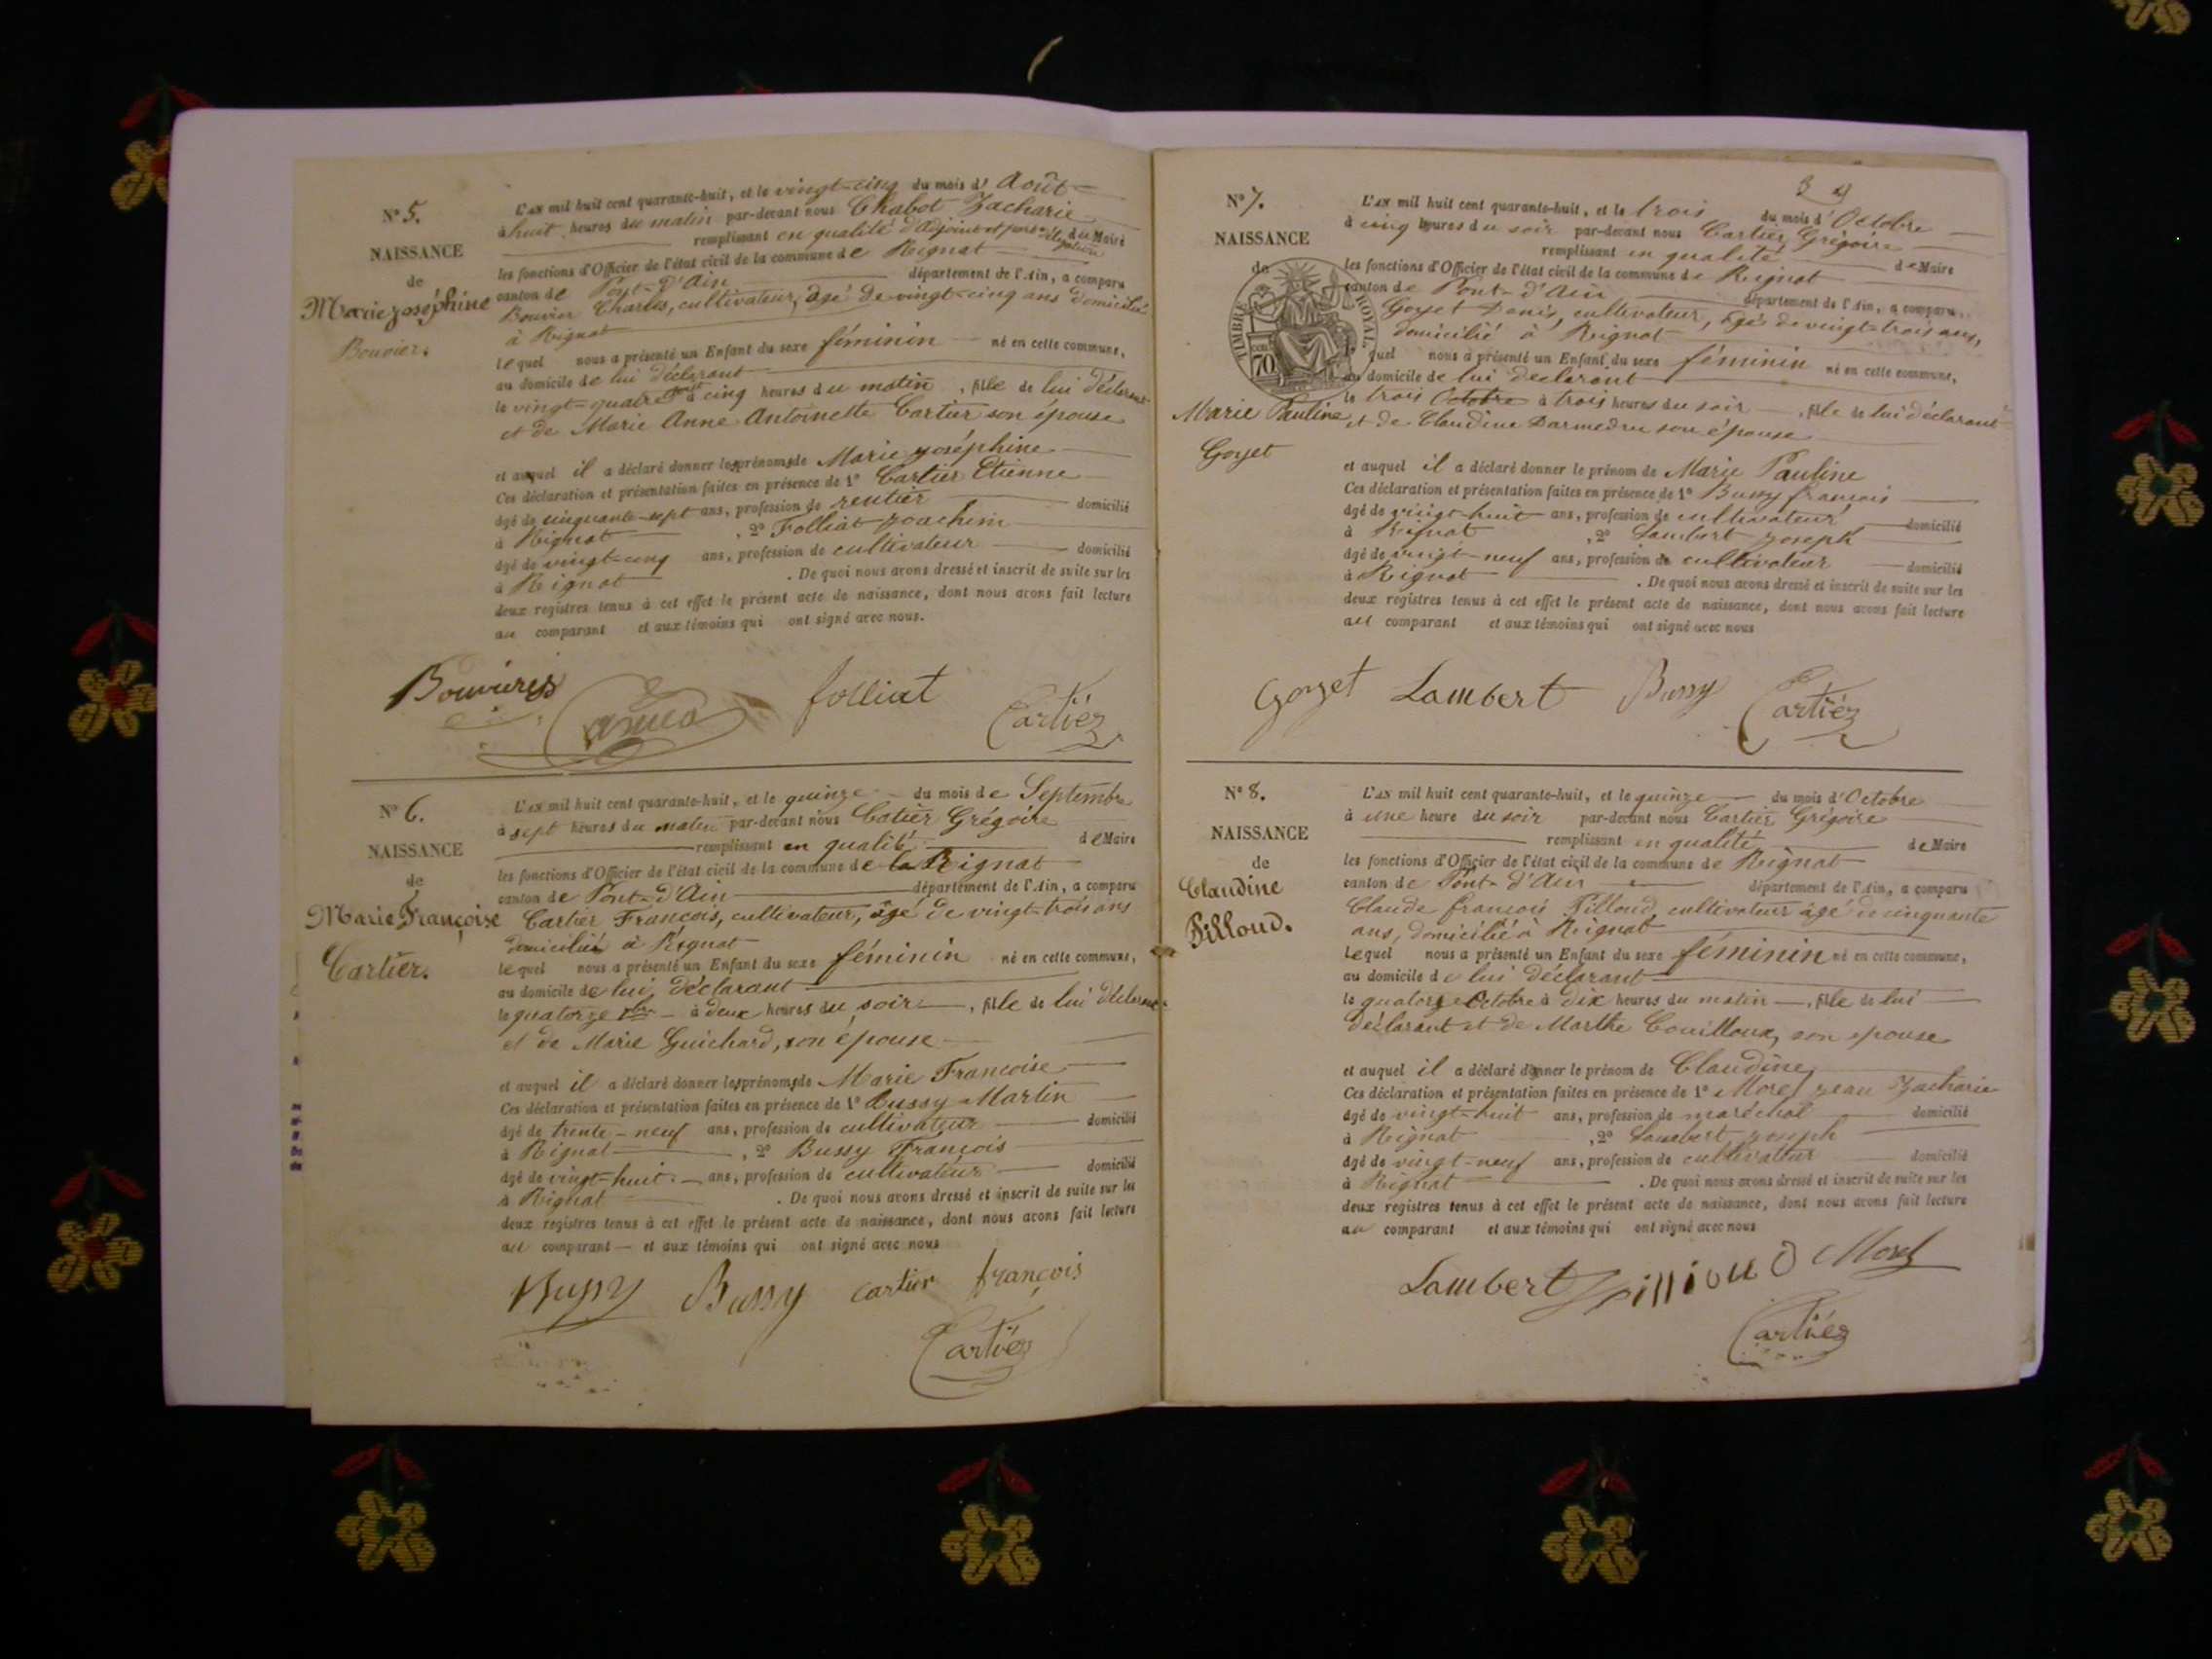 N° 5.
NAISSANCE
de
Marie Joséphine
Bouvier.
L'AN mil huit cent quarante-huit, et le vingt-cinq du mois d' Août
à huit heures du matin par-devant nous Chabot Zacharie
remplissant en qualité d'adjoint et par délégation du Maire
les fonctions d'Officier de l'état civil de la commune de Rignat
canton de Pont-d'Ain département de l'Ain, a comparu
Bouvier Charles, cultivateur, âgé de vingt-cinq ans domicilié
à Rignat
lequel nous a présenté un Enfant du sexe féminin né en cette commune,
au domicile de lui déclarant
le vingt-quatre août à cinq heures du matin, fille de lui déclarant
et de Marie Anne Antoinette Cartier son épouse
et auquel il a déclaré donner les prénoms de Marie Joséphine
Ces déclaration et présentation faites en présence de 1° Cartier Etienne
âgé de cinquante-sept ans, profession de rentier domicilié
à Rignat, 2° Folliat Joachim
âgé de vingt-cinq ans, profession de cultivateur domicilié
à Rignat. De quoi nous avons dressé et inscrit de suite sur les
deux registres tenus à cet effet le présent acte de naissance, dont nous avons fait lecture
au comparant et aux témoins qui ont signé avec nous.
folliat Cartier
N° 6.
NAISSANCE
de
Marie Françoise
Cartier.
L'AN mil huit cent quarante-huit, et le quinze du mois de Septembre
à sept heures du matin par-devant nous Catier Grégoire
remplissant en qualité de Maire
les fonctions d'Officier de l'état civil de la commune de la Rignat
canton de Pont-d'Ain département de l'Ain, a comparu
Cartier François, cultivateur, âgé de vingt-trois ans
domicilié à Rignat
lequel nous a présenté un Enfant du sexe féminin né en cette commune,
au domicile de lui déclarant
le quatorze 7bre à deux heures du soir, fille de lui déclarant
et de Marie Guichard, son épouse
et auquel il a déclaré donner les prénoms de Marie Françoise
Ces déclaration et présentation faites en présence de 1° Bussy Martin
âgé de trente-neuf ans, profession de cultivateur domicilié
à Rignat, 2° Bussy François
âgé de vingt-huit ans, profession de cultivateur domicilié
à Rignat. De quoi nous avons dressé et inscrit de suite sur les
deux registres tenus à cet effet le présent acte de naissance, dont nous avons fait lecture
au comparant et aux témoins qui ont signé avec nous
Bussy Bussy cartier françois
Cartier
N° 7.
NAISSANCE
de
TIMBRE ROYAL.
70
Marie Pauline
Goyet
3 4
L'AN mil huit cent quarante-huit, et le trois du mois d'Octobre
à cinq heures du soir par-devant nous Cartier Grégoire
remplissant en qualité de Maire
les fonctions d'Officier de l'état civil de la commune de Rignat
canton de Pont-d'Ain département de l'Ain, a comparu
Goyet Denis, cultivateur, âgé de vingt-trois ans,
domicilié à Rignat
lequel nous a présenté un Enfant du sexe féminin né en cette commune,
au domicile de lui déclarant
le trois Octobre à trois heures du soir, fille de lui déclarant
et de Claudine Darmedru son épouse
et auquel il a déclaré donner le prénom de Marie Pauline
Ces déclaration et présentation faites en présence de 1° Bussy françois
âgé de vingt-huit ans, profession de cultivateur domicilié
à Rignat, 2° Lambert Joseph
âgé de vingt-neuf ans, profession de cultivateur domicilié
à Rignat. De quoi nous avons dressé et inscrit de suite sur les
deux registres tenus à cet effet le présent acte de naissance, dont nous avons fait lecture
au comparant et aux témoins qui ont signé avec nous
Goyet Lambert Bussy Cartier
N° 8.
NAISSANCE
de
Claudine
Pilloud.
L'AN mil huit cent quarante-huit, et le quinze du mois d'Octobre
à une heure du soir par-devant nous Cartier Grégoire
remplissant en qualité de Maire
les fonctions d'Officier de l'état civil de la commune de Rignat
canton de Pont-d'Ain département de l'Ain, a comparu
Claude françois Pilloud, cultivateur âgé de cinquante
ans, domicilié à Rignat
lequel nous a présenté un Enfant du sexe féminin né en cette commune,
au domicile de lui déclarant
le quatorze Octobre à dix heures du matin, fille de lui
déclarant et de Marthe Couilloux, son épouse
et auquel il a déclaré donner le prénom de Claudine
Ces déclaration et présentation faites en présence de 1° Morel Jean Zacharie
âgé de vingt-huit ans, profession de maréchal domicilié
à Rignat, 2° Lambert Joseph
âgé de vingt-neuf ans, profession de cultivateur domicilié
à Rignat. De quoi nous avons dressé et inscrit de suite sur les
deux registres tenus à cet effet le présent acte de naissance, dont nous avons fait lecture
au comparant et aux témoins qui ont signé avec nous
Lambert pillioud Morel
Cartier